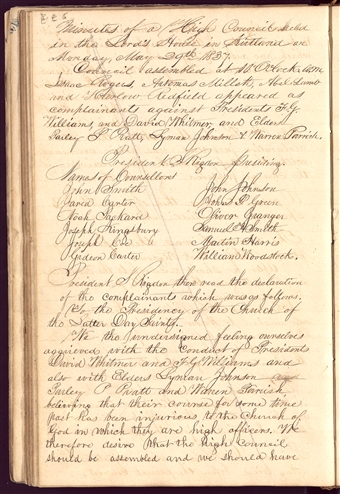 Minutes of a High Council held
in the Lord's House in Kirtland on
Monday, May 29th 1837.
Council assembled at 10 O'Clock A.M.
Isaac Rogers, Artemas Millett, Abel Lamb
and Harlow Redfield appeared as
complainants against Presidents F. G.
Williams and David Whitmer and Elders
Parley P. Pratt, Lyman Johnson & Warren Parrish.
President S. Rigdon presiding.
Names of Counsellors
John Smith John Johnson
Jared Carter John P. Green
Noah Packard Oliver Granger
Joseph Kingsbury Samuel H. Smith
Joseph Coe Martin Harris
Gideon Carter William Woodstock.
President S Rigdon then read the declaration
of the complainants which was as follows.
To the Presidency of the Church of
the Latter Day Saints.
We the undersigned feeling ourselves
aggrieved with the conduct of Presidents
David Whitmer and F. G. Williams and
also with Elders Lyman Johnson
Parley P. Pratt and Warren Parrish
believing that their course for some time
past has been injurious to the Church of
God in which they are high officers. We
therefore desire that the high Council
should be assembled and we should have